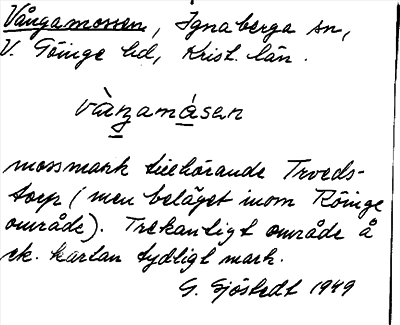 Vångamossen, Ignaberga sn,
V. Göinge hd, Krist. län.
vàngamásen
mossmark tillhörande Troeds-
torp (men beläget inom Röinge
område). Trekantigt område å
ek. kartan tydligt mark.
G. Sjöstedt 1949